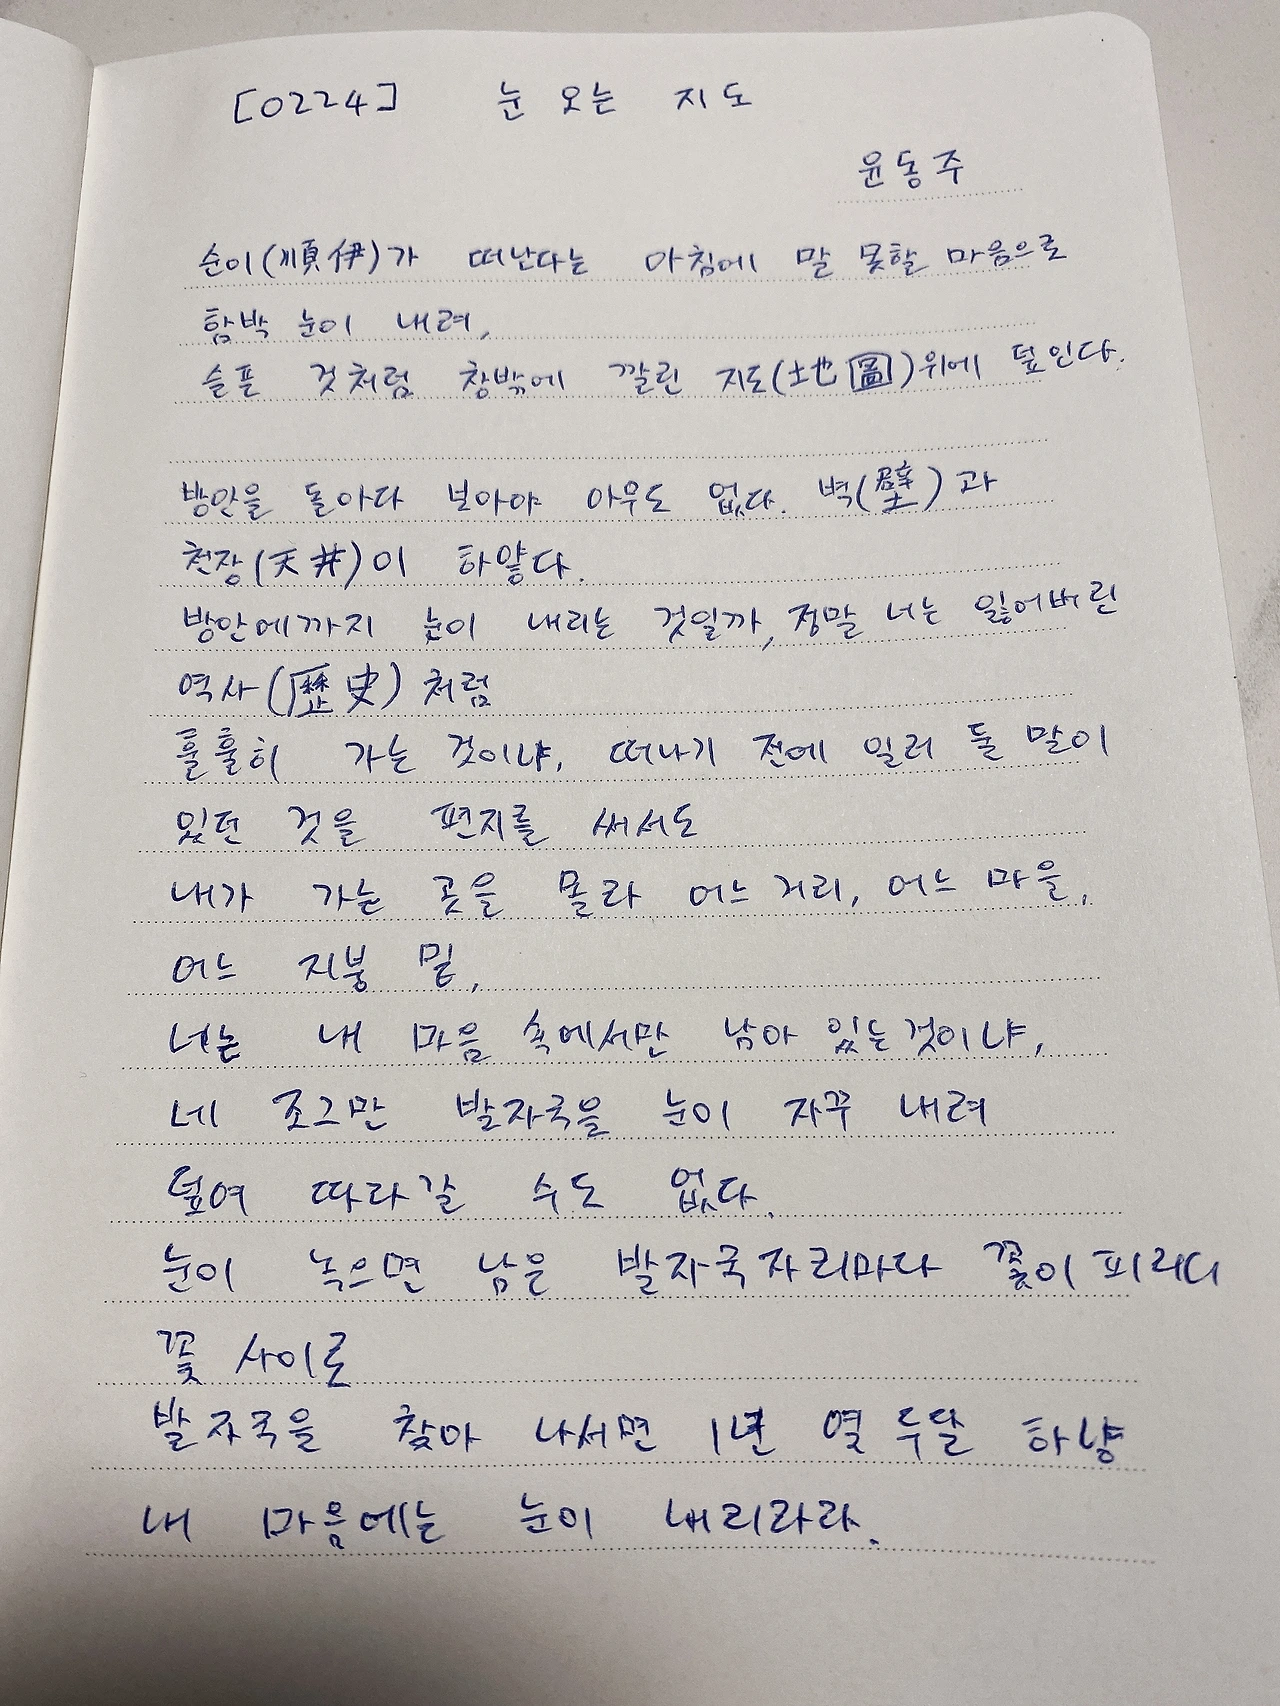 [0224] 눈 오는 지도
윤동주
순이(順伊)가 떠난다는 아침에 말 못할 마음으로
함박 눈이 내려,
슬픈 것처럼 창밖에 깔린 지도(地圖)위에 덮인다.
방안을 돌아다 보아야 아무도 없다. 벽(壁)과
천장(天井)이 하얗다.
방안에까지 눈이 내리는 것일까, 정말 너는 잃어버린
역사(歷史)처럼
훌훌히 가는 것이냐, 떠나기 전에 일러 둘 말이
있던 것을 편지를 써서도
내가 가는 곳을 몰라 어느 거리, 어느 마을,
어느 지붕 밑,
너는 내 마음 속에서만 남아 있는 것이냐,
네 조그만 발자국을 눈이 자꾸 내려
덮여 따라갈 수도 없다.
눈이 녹으면 남은 발자국자리마다 꽃이 피리니
꽃 사이로
발자국을 찾아 나서면 1년 열 두달 하냥
내 마음에는 눈이 내리리라.